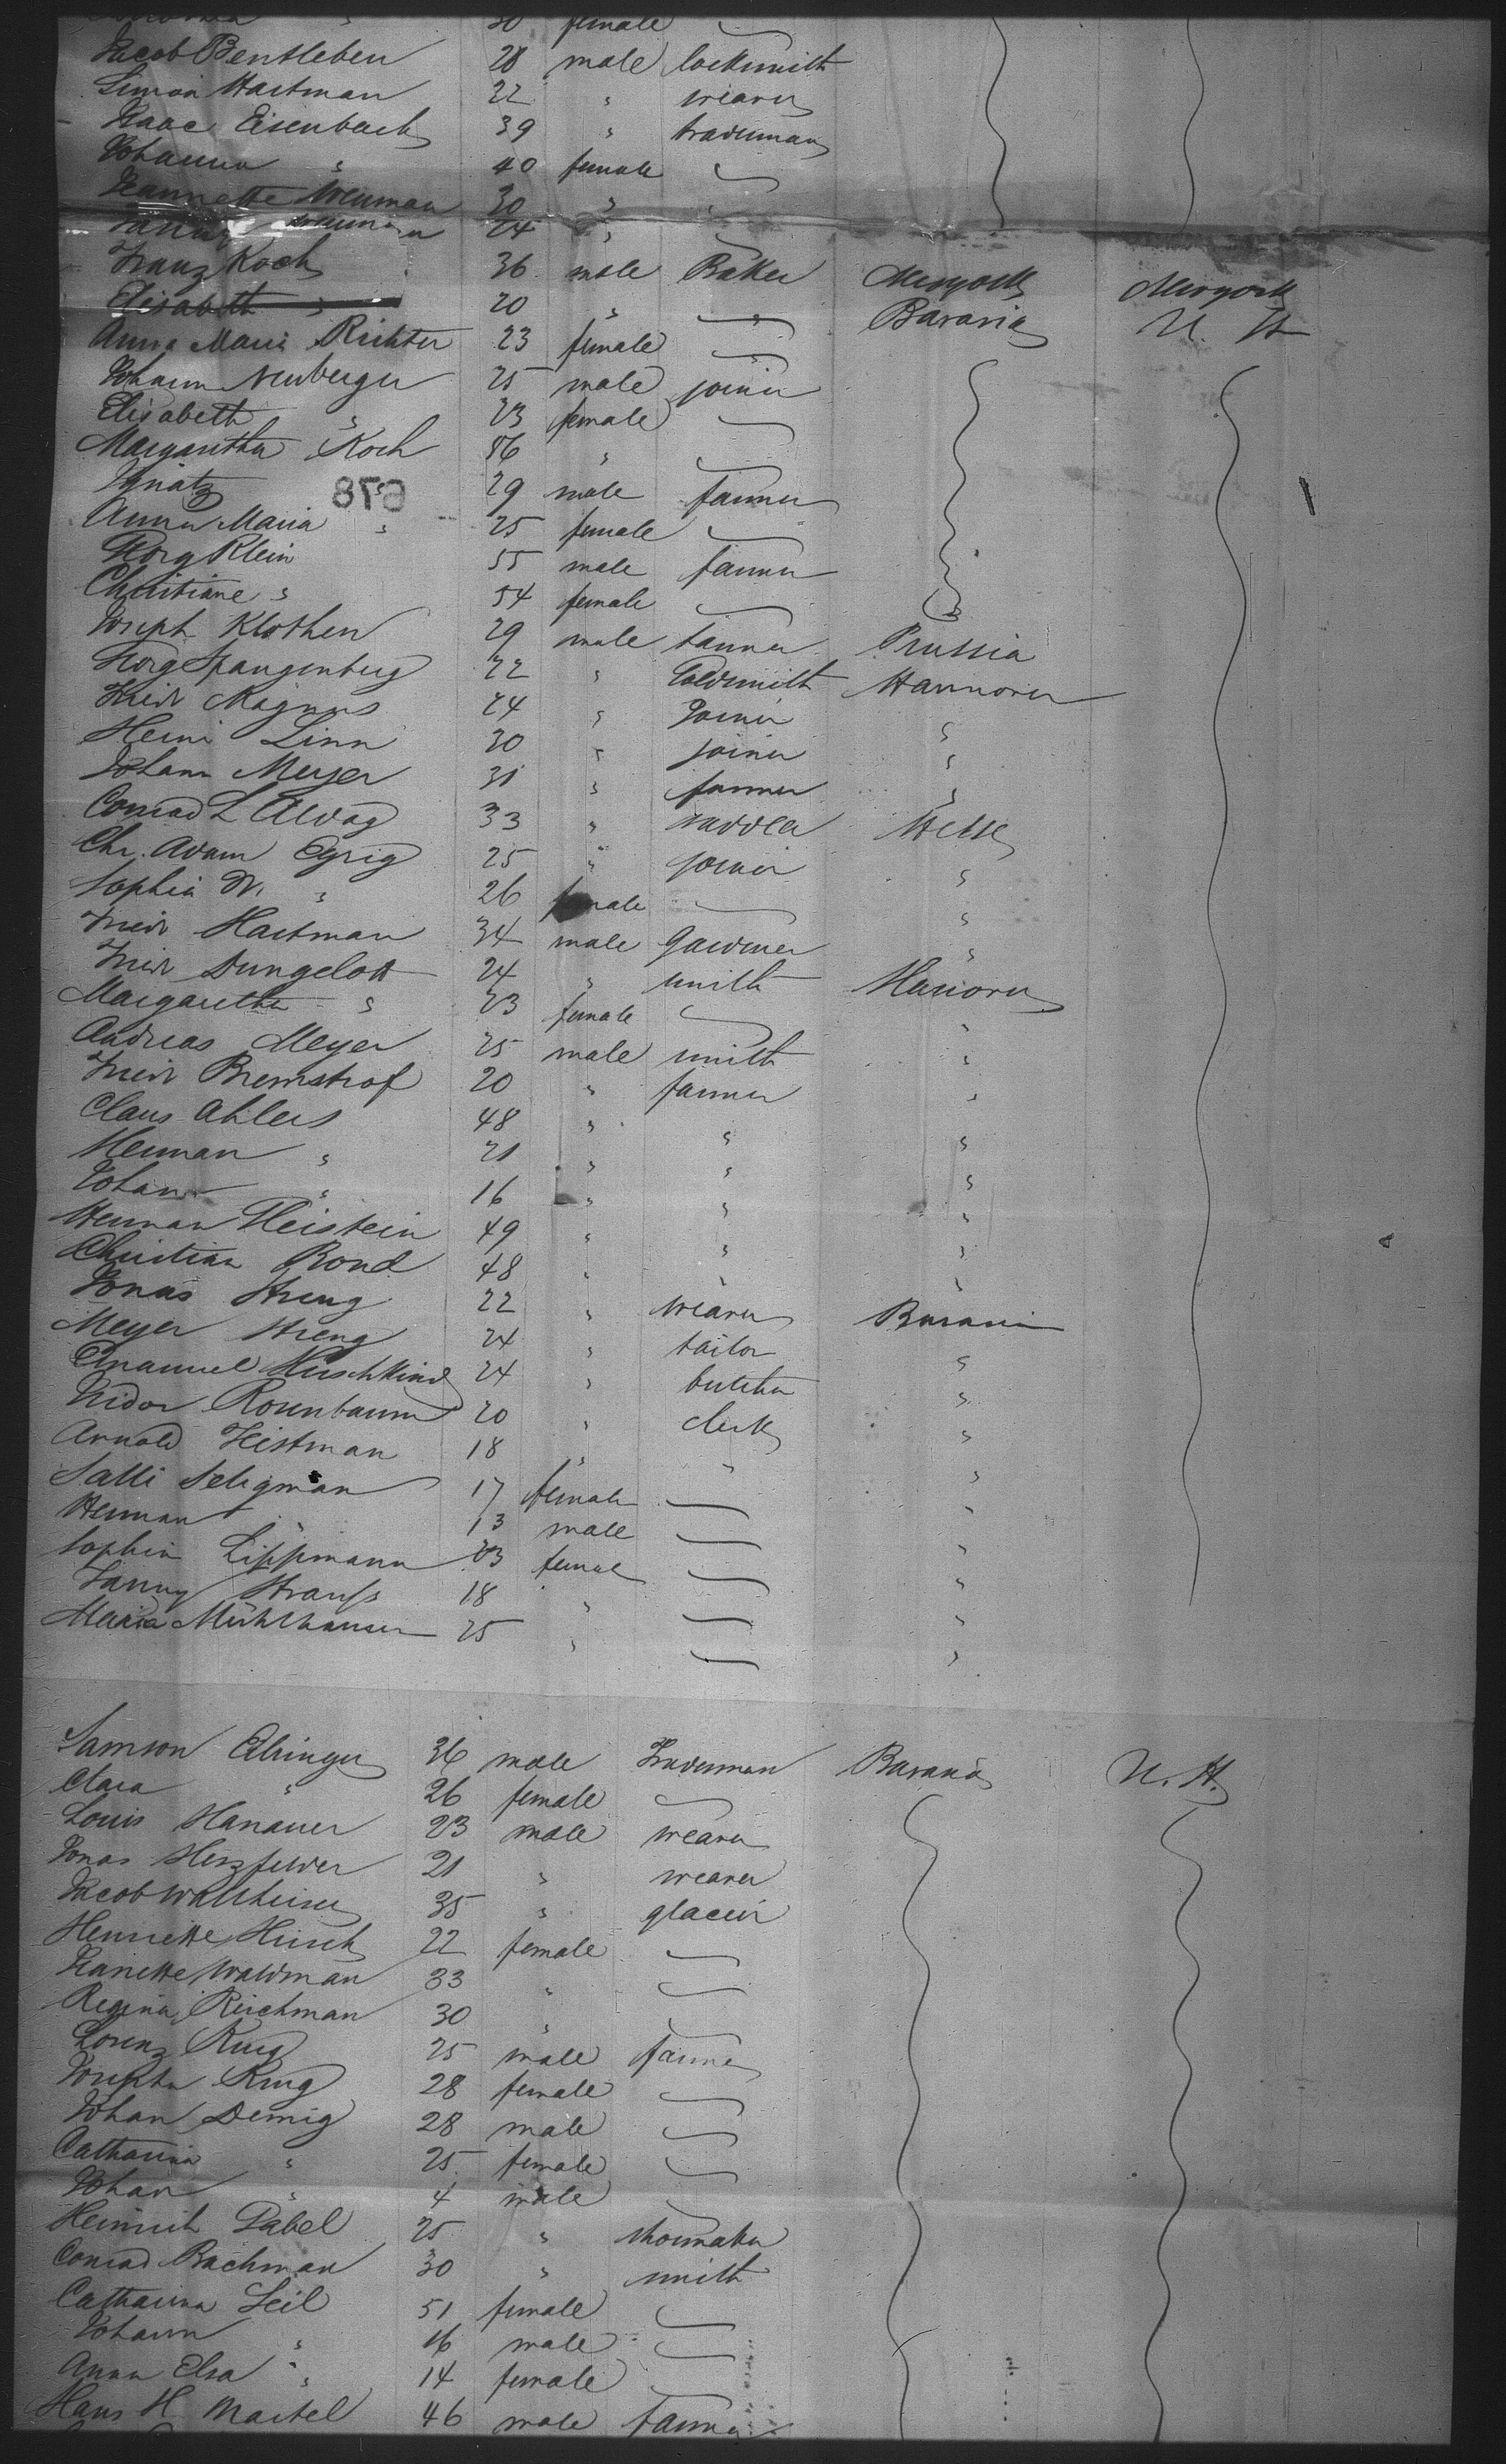 30 female
Jacob Bentleben 28 male locksmith
Simon Hartman 22 " weaver
Isaac Eisenbach 39 " tradesman
Johanna " 40 female
Jeannette Neuman 30 "
24 "
Franz Koch 36 male Baker Newyork Newyork
Elisabeth " 20 " " Bavaria U. St
Anna Maria Richter 23 female
Johann Neuberger 25 male joiner
Elisabeth " 23 female
Margaretha Koch 56 "
Ignatz " 29 male farmer
678
Anna Maria " 25 female
Georg Klein 55 male farmer
Christiane " 54 female
Joseph Klothen 29 male tanner Prussia
Georg Spangenberg 22 " Goldsmith Hannover
Friedr Magnus 24 " Joiner "
Heinr Linn 30 " joiner "
Johann Meyer 31 " farmer "
Conrad L 33 " saddler Hesse
Chr. Adam Eyrig 25 " joiner "
Sophia W. " 26 female "
Friedr Hartman 34 male Gardiner "
Friedr Dungelott 24 " smith Hanover
Margaretha " 23 female "
Andreas Meyer 25 male smith "
Friedr Bremstrof 20 " farmer "
Claus Ahlers 48 " " "
Herman " 21 " " "
Johann " 16 " " "
Herman Heistein 49 " " "
Christian Bond 48 " " "
Jonas Streng 22 " weaver Bavaria
Meyer Streng 24 " tailor "
Emanuel Hirschkind 24 " butcher "
Isidor Rosenbaum 20 " clerk "
Arnold Heistman 18 " " "
Salli Seligman 17 female "
Herman " 13 male "
Sophia Lippmann 23 female "
Fanny Strauss 18 " "
Maria Mühlhauser 25 " "
Samson Ehinger 36 male Tradesman Bavaria U. St.
Clara " 26 female
Louis Hanauer 23 male weaver
Jonas Herzfelder 21 " weaver
Jacob Waltheiser 35 " glacier
Henriette Hirsch 22 female
Janette Waldman 33 "
Regina Reichman 30 "
Lorenz Krug 25 male farmer
Josepha Krug 28 female
Johan Demig 28 male
Catharina " 25 female
Johan " 4 male
Heinrich Pabel 25 " shoemaker
Conrad Bachman 30 " smith
Catharina Seil 51 female
Johann " 16 male
Anna Elsa " 14 female
Hans H. Martel 46 male farmer